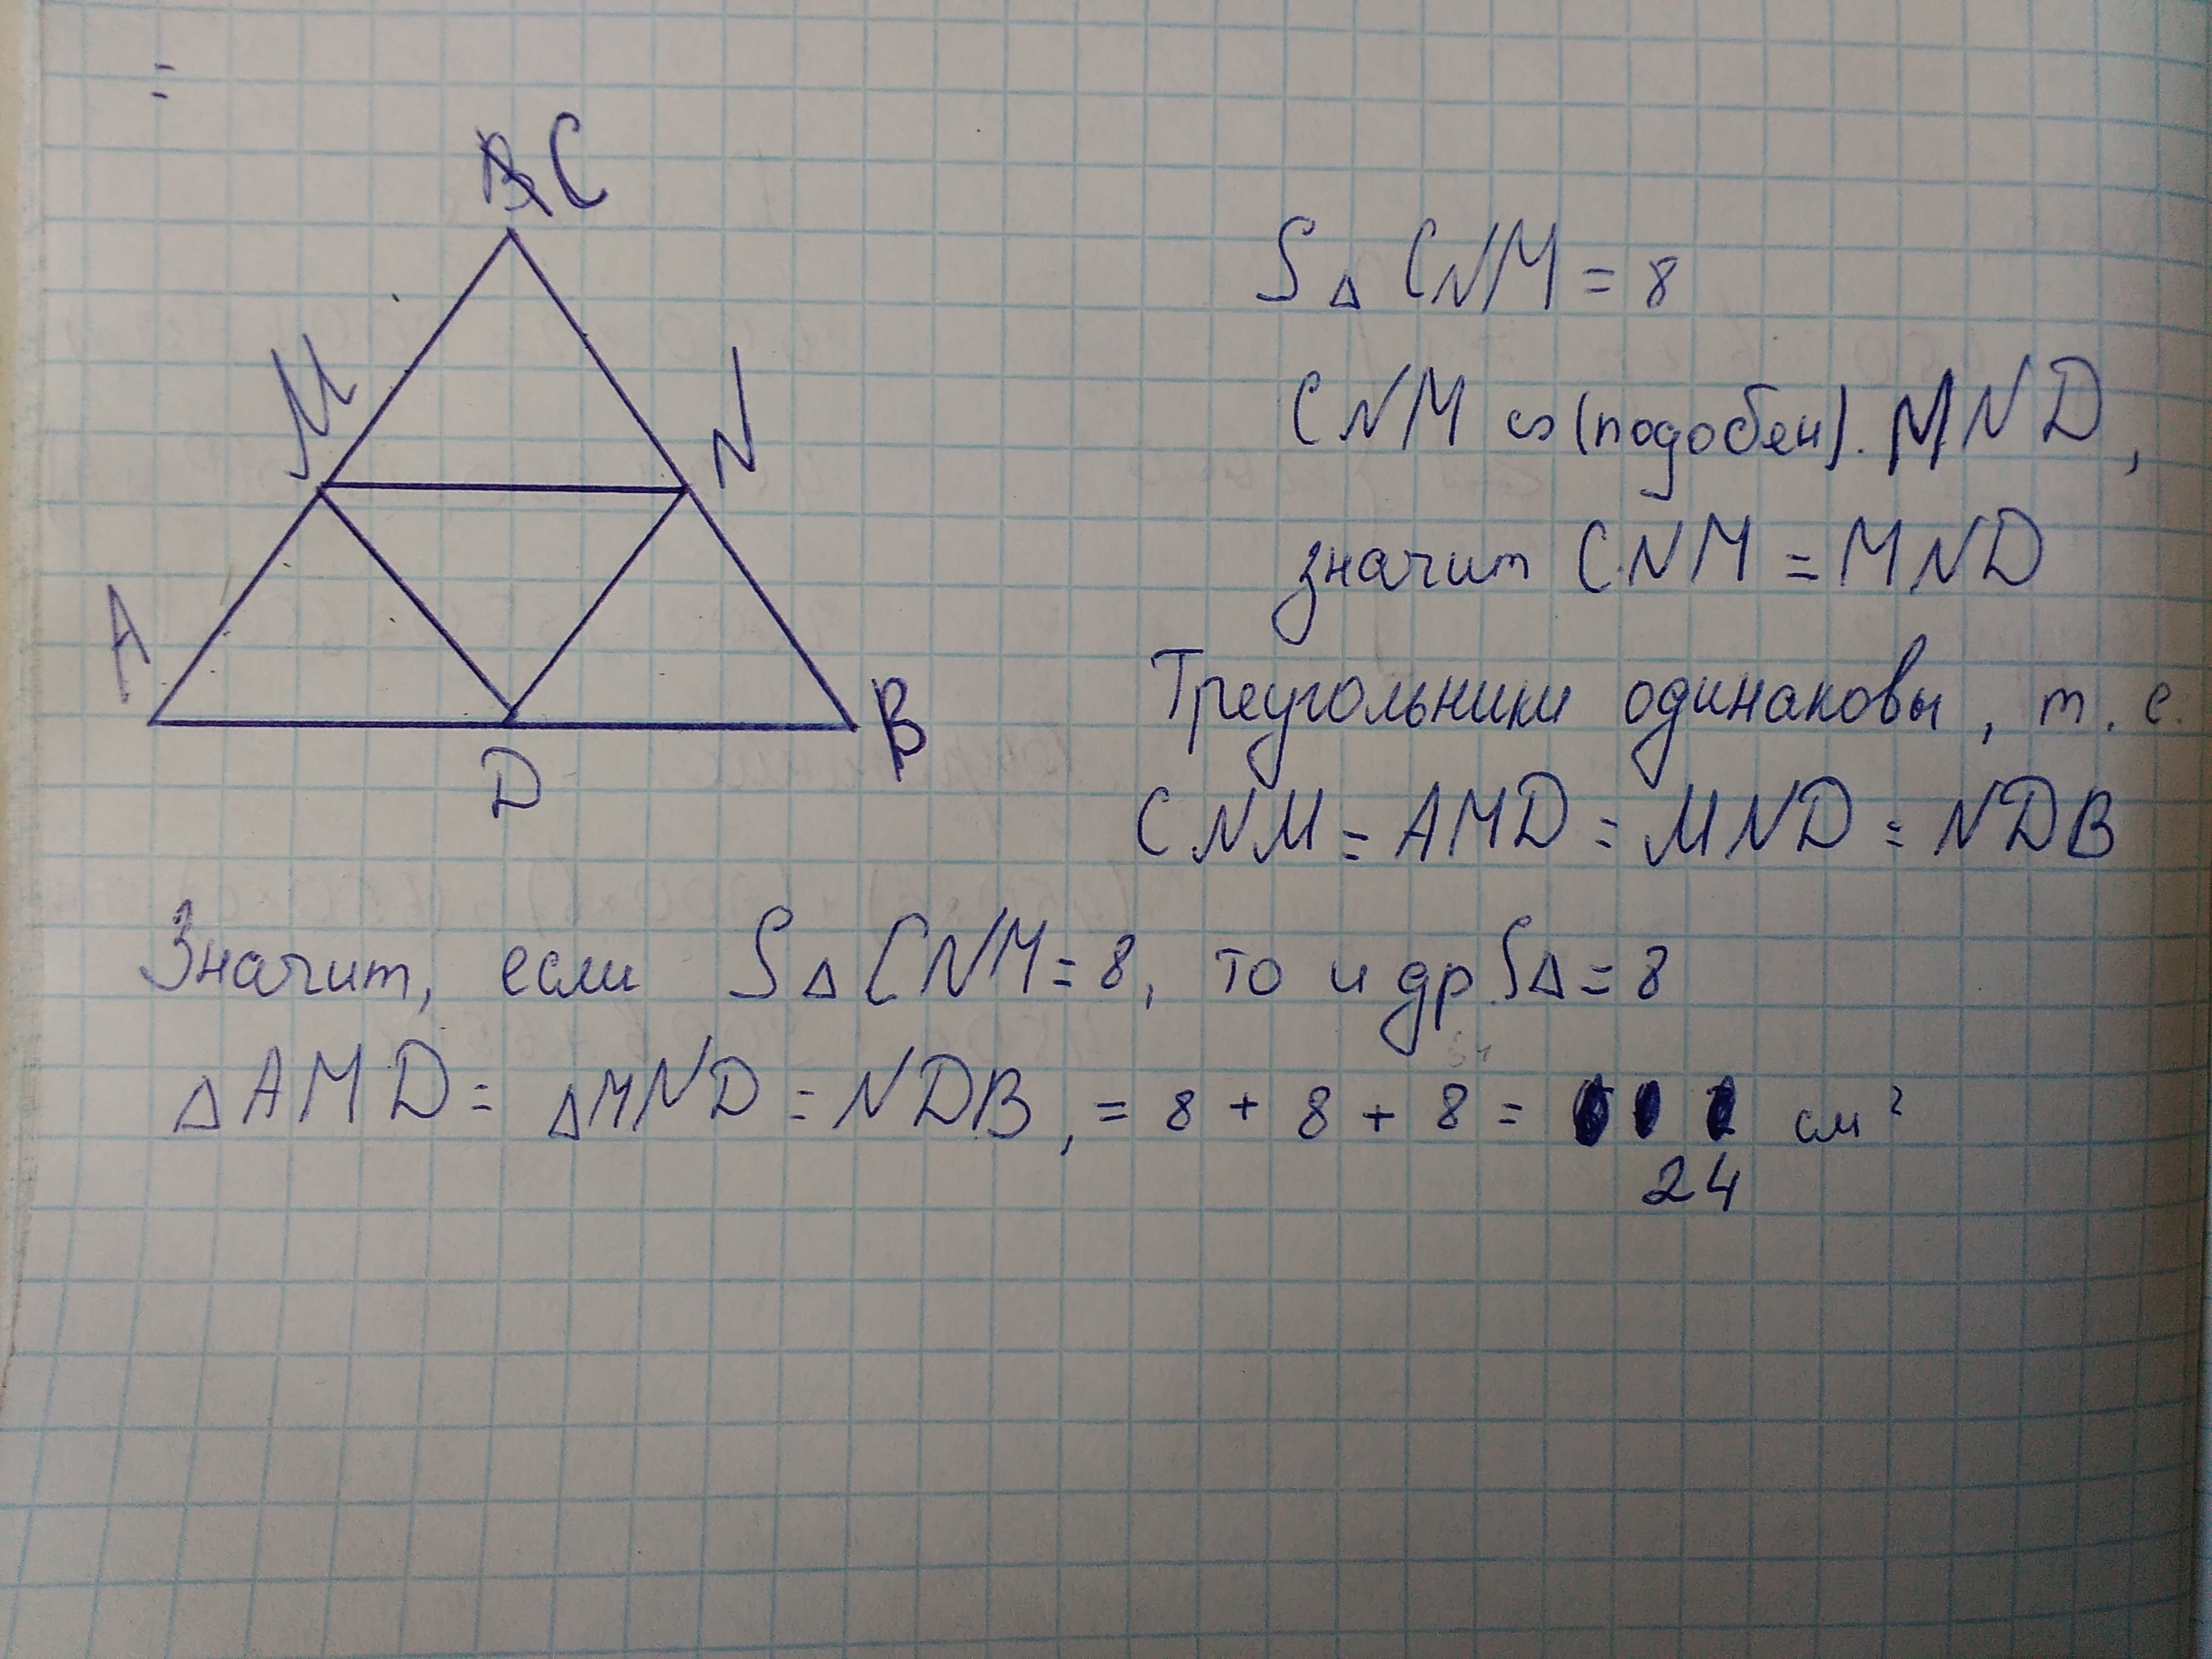 =
C
M
N
A
B
D
S △ CNM = 8
CNM ∽ (подобен). MND,
значит CNM = MND
Треугольники одинаковы, т. е.
CNM = AMD = MND = NDB
Значит, если S △ CNM = 8, то и др. S△ = 8
△ AMD = △MND = NDB, = 8 + 8 + 8 = см²
24